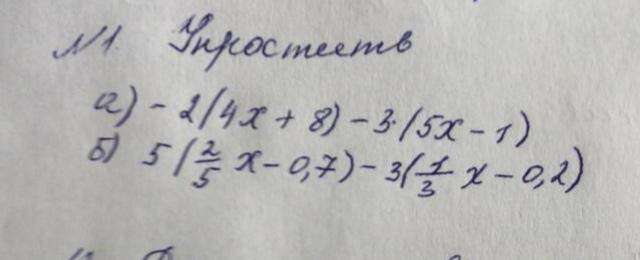 №1. Упростить
а) - 2(4x + 8) - 3·(5x - 1)
б) 5(2/5 x - 0,7) - 3(1/3 x - 0,2)